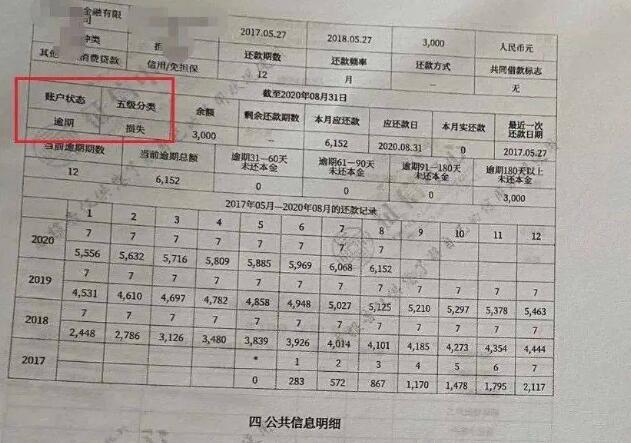 金融有限
司
2017.05.27 2018.05.27 3,000 人民币元
种类 还款期数 还款频率 还款方式 共同借款标志
其他 消费贷款 信用/免担保 12 月 -- 无
截至2020年08月31日
账户状态 五级分类 余额 剩余还款期数 本月应还款 应还款日 本月实还款 最近一次还款日期
逾期 损失 3,000 6,152 2020.08.31 0 2017.05.27
当前逾期期数 当前逾期总额 逾期31—60天未还本金 逾期61—90天未还本金 逾期91—180天未还本金 逾期180天以上未还本金
12 6,152 0 0 0 3,000
2017年05月—2020年08月的还款记录
1 2 3 4 5 6 7 8 9 10 11 12
2020 7 7 7 7 7 7 7 7
5,556 5,632 5,716 5,809 5,885 5,969 6,068 6,152
2019 7 7 7 7 7 7 7 7 7 7 7 7
4,531 4,610 4,697 4,782 4,858 4,948 5,027 5,125 5,210 5,297 5,378 5,463
2018 7 7 7 7 7 7 7 7 7 7 7 7
2,448 2,786 3,126 3,480 3,839 3,926 4,014 4,101 4,185 4,273 4,354 4,444
2017 * 1 2 3 4 5 6 7
0 283 572 867 1,170 1,478 1,795 2,117
四 公共信息明细